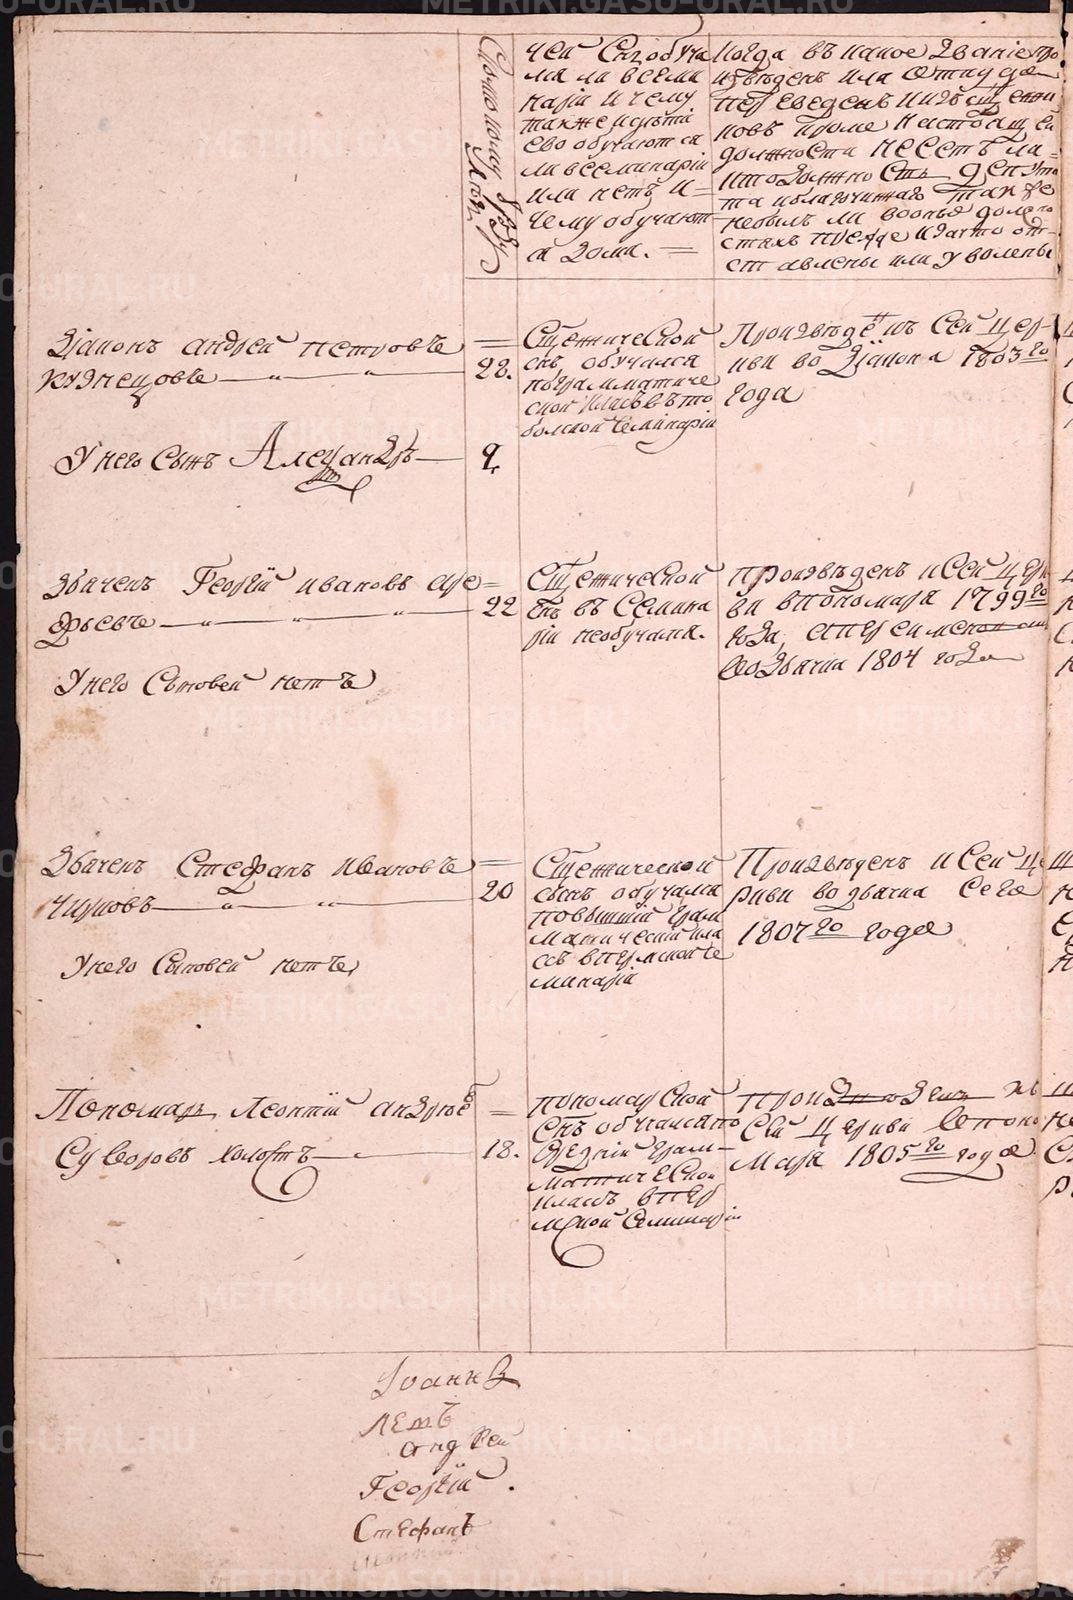 Сколькому кому лѣтъ
чей Сынъ обуча
лся ли в семи
наріи и чему
также и дѣти
ево обучаются
ли в семинаріи
или нетъ и =
чему обучают
ся дома. =
когда въ какое Званіе про
изведенъ или откуда
переведенъ и изъ священни
ковъ кроме настоящей
должности несетъ ли =
кто должность депута
та и благочиннаго также
небылъ ли в оныхъ должно
стяхъ прежде и за что от-
ставлены или уволены
Діаконъ андрей петровъ =
кузнецовъ 28.
Сщенической
снъ обучался
пограмматиче
ской классъ въ то
болской семинаріи
Произведенъ къ Сей цер-
кви во діакона 1803го
года
У него Сынъ Александръ 9
Дьячекъ Георгій ивановъ аре =
фьевъ 22
Сщенической
снъ въ Семина
ріи необучался.
Произведенъ к Сей церк
ви в пономаря 1799го
года, а переименованъ
во дьячка 1804 года
У него Сыновей нетъ
Дьячекъ Стефанъ ивановъ =
Чирковъ 20
Сщенической
сынъ обучался
повышній грам
матическій кла
ссъ в пермской се
минаріи
Произведенъ к Сей це
ркви во дьячка сего
1807го года
У него Сыновей нетъ
Пономарь Леонтій андреевъ =
Суворовъ холостъ 18.
пономарской
Снъ обучался по
Средній грам-
матической
классъ в пер
мской Семинаріи
произведенъ къ
Сей церкви в поно
маря 1805го года
Іоаннъ
Летъ
андрей
Георгій.
Стефанъ
Леонтий